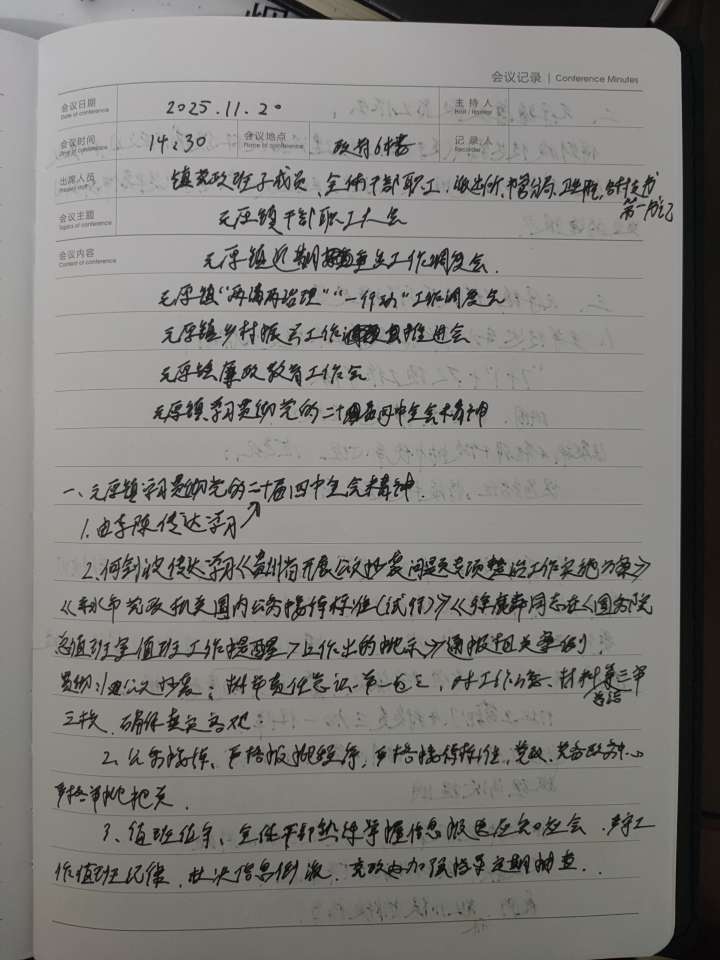 会议记录 | Conference Minutes
会议日期 Date of conference 2025.11.20 主持人 Host / Hostess
会议时间 Time of conference 14:30 会议地点 Place of conference 政府6楼 记录人 Recorder
出席人员 Present staff 镇党政班子成员、全体干部职工、派出所、卫生院、各村支书
第一书记
会议主题 Topics of conference 元厚镇干部职工大会
会议内容 Content of conference 元厚镇近期重点工作调度会.
元厚镇“两清两治理”“一行动”工作调度会
元厚镇乡村振兴工作推进会
元厚镇廉政教育工作会
元厚镇学习贯彻党的二十届四中全会精神
一、元厚镇学习贯彻党的二十届四中全会精神.
1.由李陈传达学习↗
2.何剑波传达学习《贵州省开展公文抄袭问题专项整治工作实施方案》
《市党政机关国内公务接待标准(试行)》《徐麟同志在《国务院
总值班室值班工作提醒》上作出的批示》通报相关案例》
公文抄袭;树牢责任意识 第一 材料
三校、确保真实客观
2、公务接待、严格报批程序,严格接待标准,党政
严格审批把关
3、值班值守、全体干部熟练掌握信息报送
作值班纪律、杜决信息倒流、党政办加强指导定期抽查.